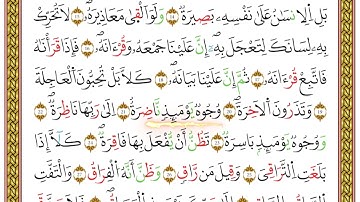 بَلِ ٱلۡإِنسَـٰنُ عَلَىٰ نَفۡسِهِۦ بَصِيرَةٞ ١٤ وَلَوۡ أَلۡقَىٰ مَعَاذِيرَهُۥ ١٥ لَا تُحَرِّكۡ
بِهِۦ لِسَانَكَ لِتَعۡجَلَ بِهِۦٓ ١٦ إِنَّ عَلَيۡنَا جَمۡعَهُۥ وَقُرۡءَانَهُۥ ١٧ فَإِذَا قَرَأۡنَـٰهُ
فَٱتَّبِعۡ قُرۡءَانَهُۥ ١٨ ثُمَّ إِنَّ عَلَيۡنَا بَيَانَهُۥ ١٩ كَلَّا بَلۡ تُحِبُّونَ ٱلۡعَاجِلَةَ
وَتَذَرُونَ ٱلۡأٓخِرَةَ ٢١ وُجُوهٞ يَوۡمَئِذٖ نَّاضِرَةٌ ٢٢ إِلَىٰ رَبِّهَا نَاظِرَةٞ
وَوُجُوهٞ يَوۡمَئِذِۭ بَاسِرَةٞ ٢٤ تَظُنُّ أَن يُفۡعَلَ بِهَا فَاقِرَةٞ ٢٥ كَلَّآ إِذَا
بَلَغَتِ ٱلتَّرَاقِيَ ٢٦ وَقِيلَ مَنۡۜ رَاقٖ ٢٧ وَظَنَّ أَنَّهُ ٱلۡفِرَاقُ ٢٨ وَٱلۡتَفَّتِ